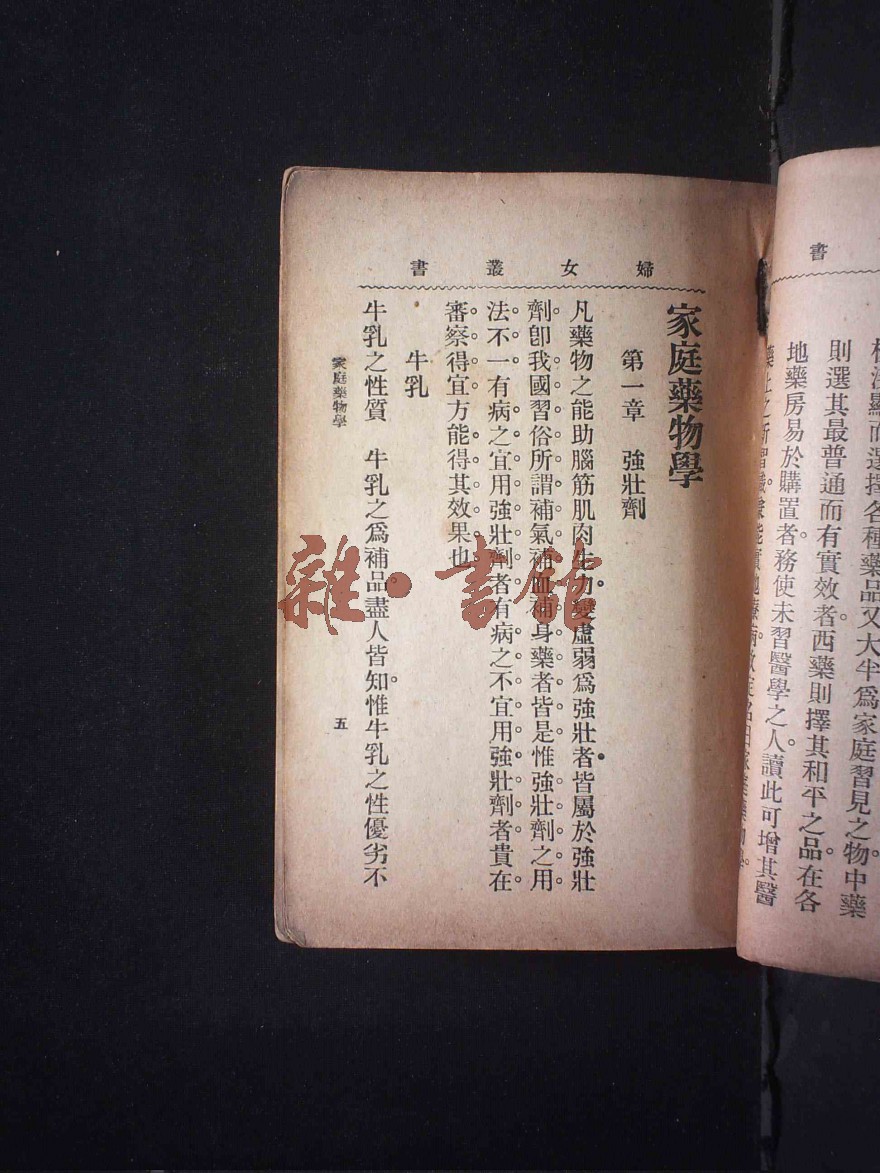 書
則選其最普通而有實效者。西藥則擇其和平之品。在各
地藥房易於購置者。務使未習醫學之人。讀此可增其醫
婦女叢書
家庭藥物學
第一章　強壯劑
凡藥物之能助腦筋肌肉生力。變虛弱爲強壯者。皆屬於強壯
劑。卽我國習俗所謂補氣補血補身藥者皆是。惟強壯劑之用
法不一。有病之宜用強壯劑者。有病之不宜用強壯劑者。貴在
審察得宜。方能得其效果也。
牛乳
牛乳之性質　牛乳之爲補品。盡人皆知。惟牛乳之性優劣不
家庭藥物學
五
雜·書館